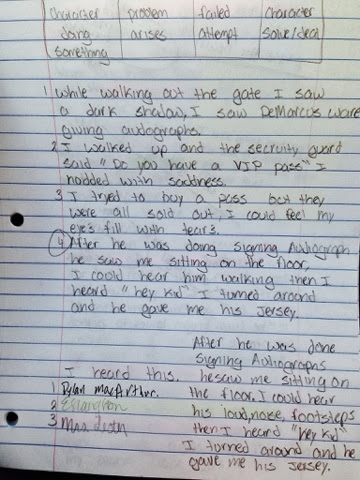 character problem failed character
doing arises attempt solve/deal
something
1 while walking out the gate I saw
a dark shadow, I saw DeMarcus ware
giving audographs.
2 I walked up and the secruity guard
said "Do you have a VIP pass" I
nodded with saddness.
3 I tried to buy a pass but they
were all sold out, I could feel my
eye's fill with tear's.
4 After he was doing signing Autograph
he saw me sitting on the floor,
I could hear him walking then I
heard "hey kid" I turned around
and he gave me his Jersey.
After he was done
signing Autographs
I heard this. he saw me sitting on
1 Dylan macArthur. the floor. I could hear
2 his loud, noise, footsteps
3 Mrs. then I heard "hey kid"
I turned around and he
gave me his Jersey.